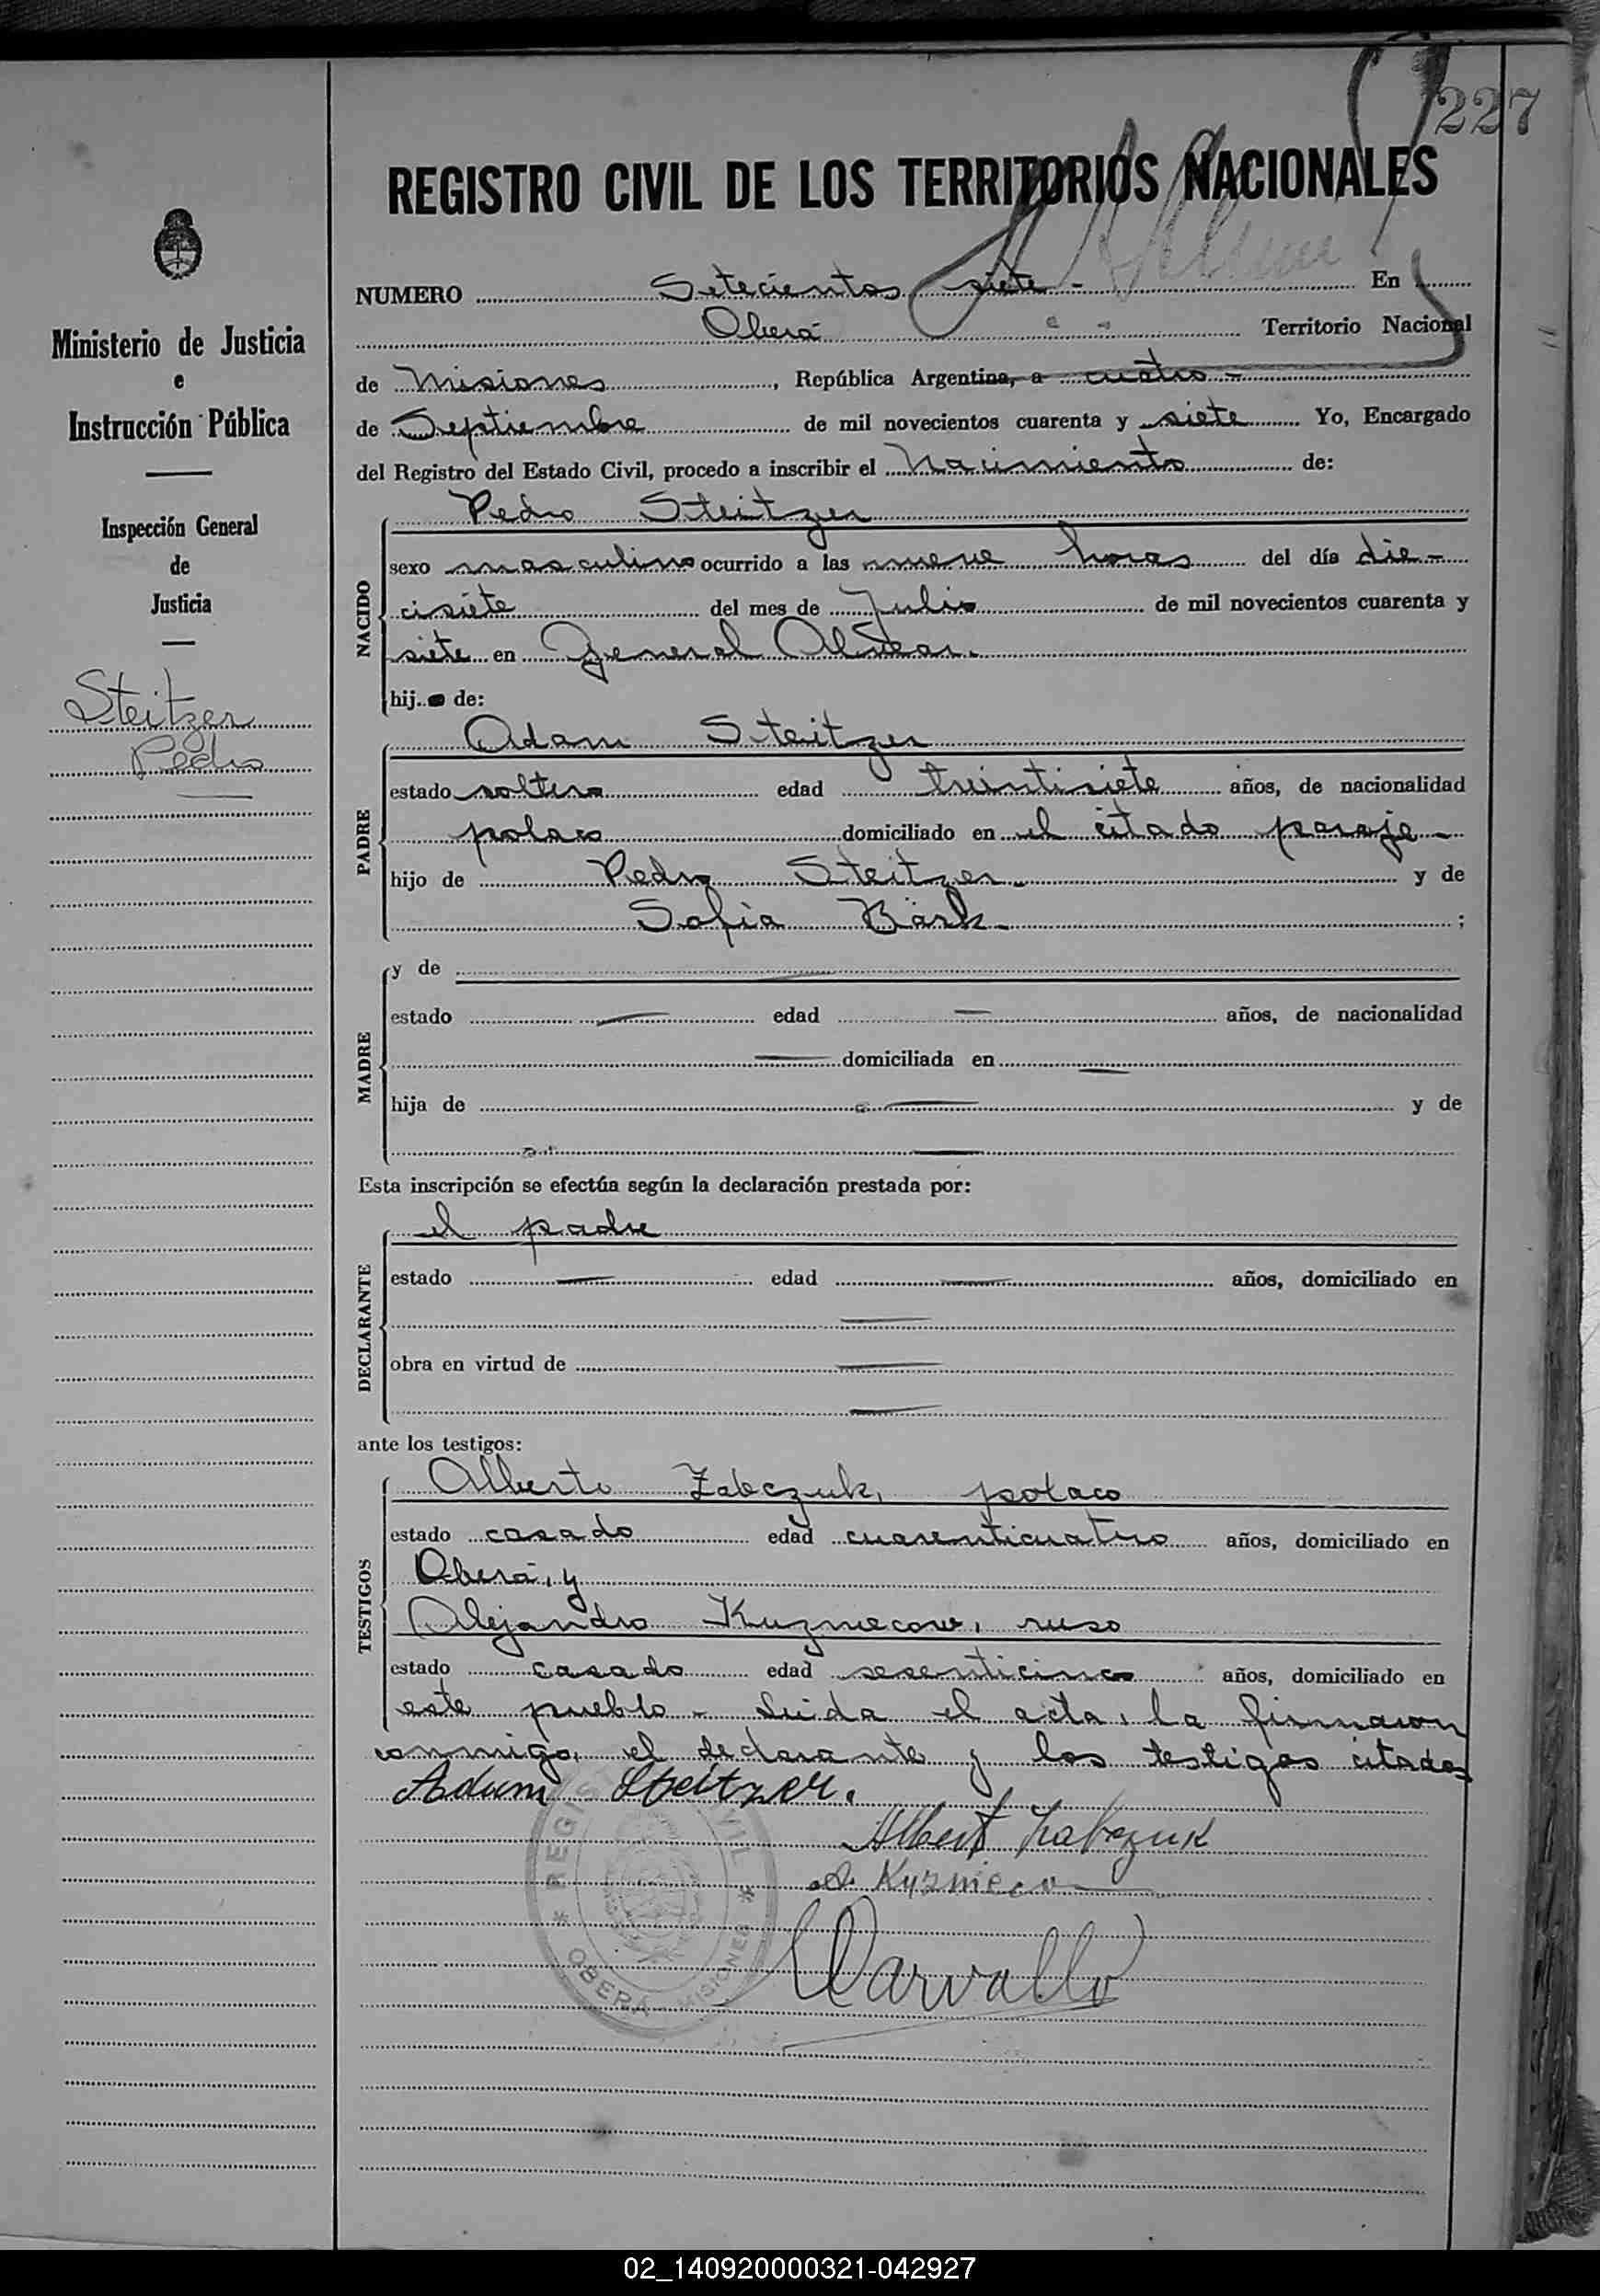 227
REGISTRO CIVIL DE LOS TERRITORIOS NACIONALES
Ministerio de Justicia
e
Instrucción Pública
Inspección General
de
Justicia
Steitzer
Pedro
NUMERO Setecientos siete - En
Oberá Territorio Nacional
de Misiones, República Argentina, a cuatro -
de Septiembre de mil novecientos cuarenta y siete Yo, Encargado
del Registro del Estado Civil, procedo a inscribir el Nacimiento de:
NACIDO
Pedro Steitzer
sexo masculino ocurrido a las nueve horas del día die-
cisiete del mes de Julio de mil novecientos cuarenta y
siete en General Alvear.
hijo de:
PADRE
Adam Steitzer
estado soltero edad treintisiete años, de nacionalidad
polaco domiciliado en el citado paraje -
hijo de Pedro Steitzer - y de
Sofia Bärk - ;
MADRE
y de
estado edad años, de nacionalidad
domiciliada en
hija de y de
Esta inscripción se efectúa según la declaración prestada por:
DECLARANTE
el padre
estado edad años, domiciliado en
obra en virtud de
ante los testigos:
TESTIGOS
Alberto Zabczuk, polaco
estado casado edad cuarenticuatro años, domiciliado en
Oberá, y
Alejandro Kuzmecow, ruso
estado casado edad sesenticinco años, domiciliado en
este pueblo - Leida el acta, la firmaron
conmigo, el declarante y los testigos citados
Adam Steitzer.
Albert Zabczuk
A. Kyzniecow
Carvallo
REGISTRO CIVIL * OBERÁ - MISIONES *
02_140920000321-042927